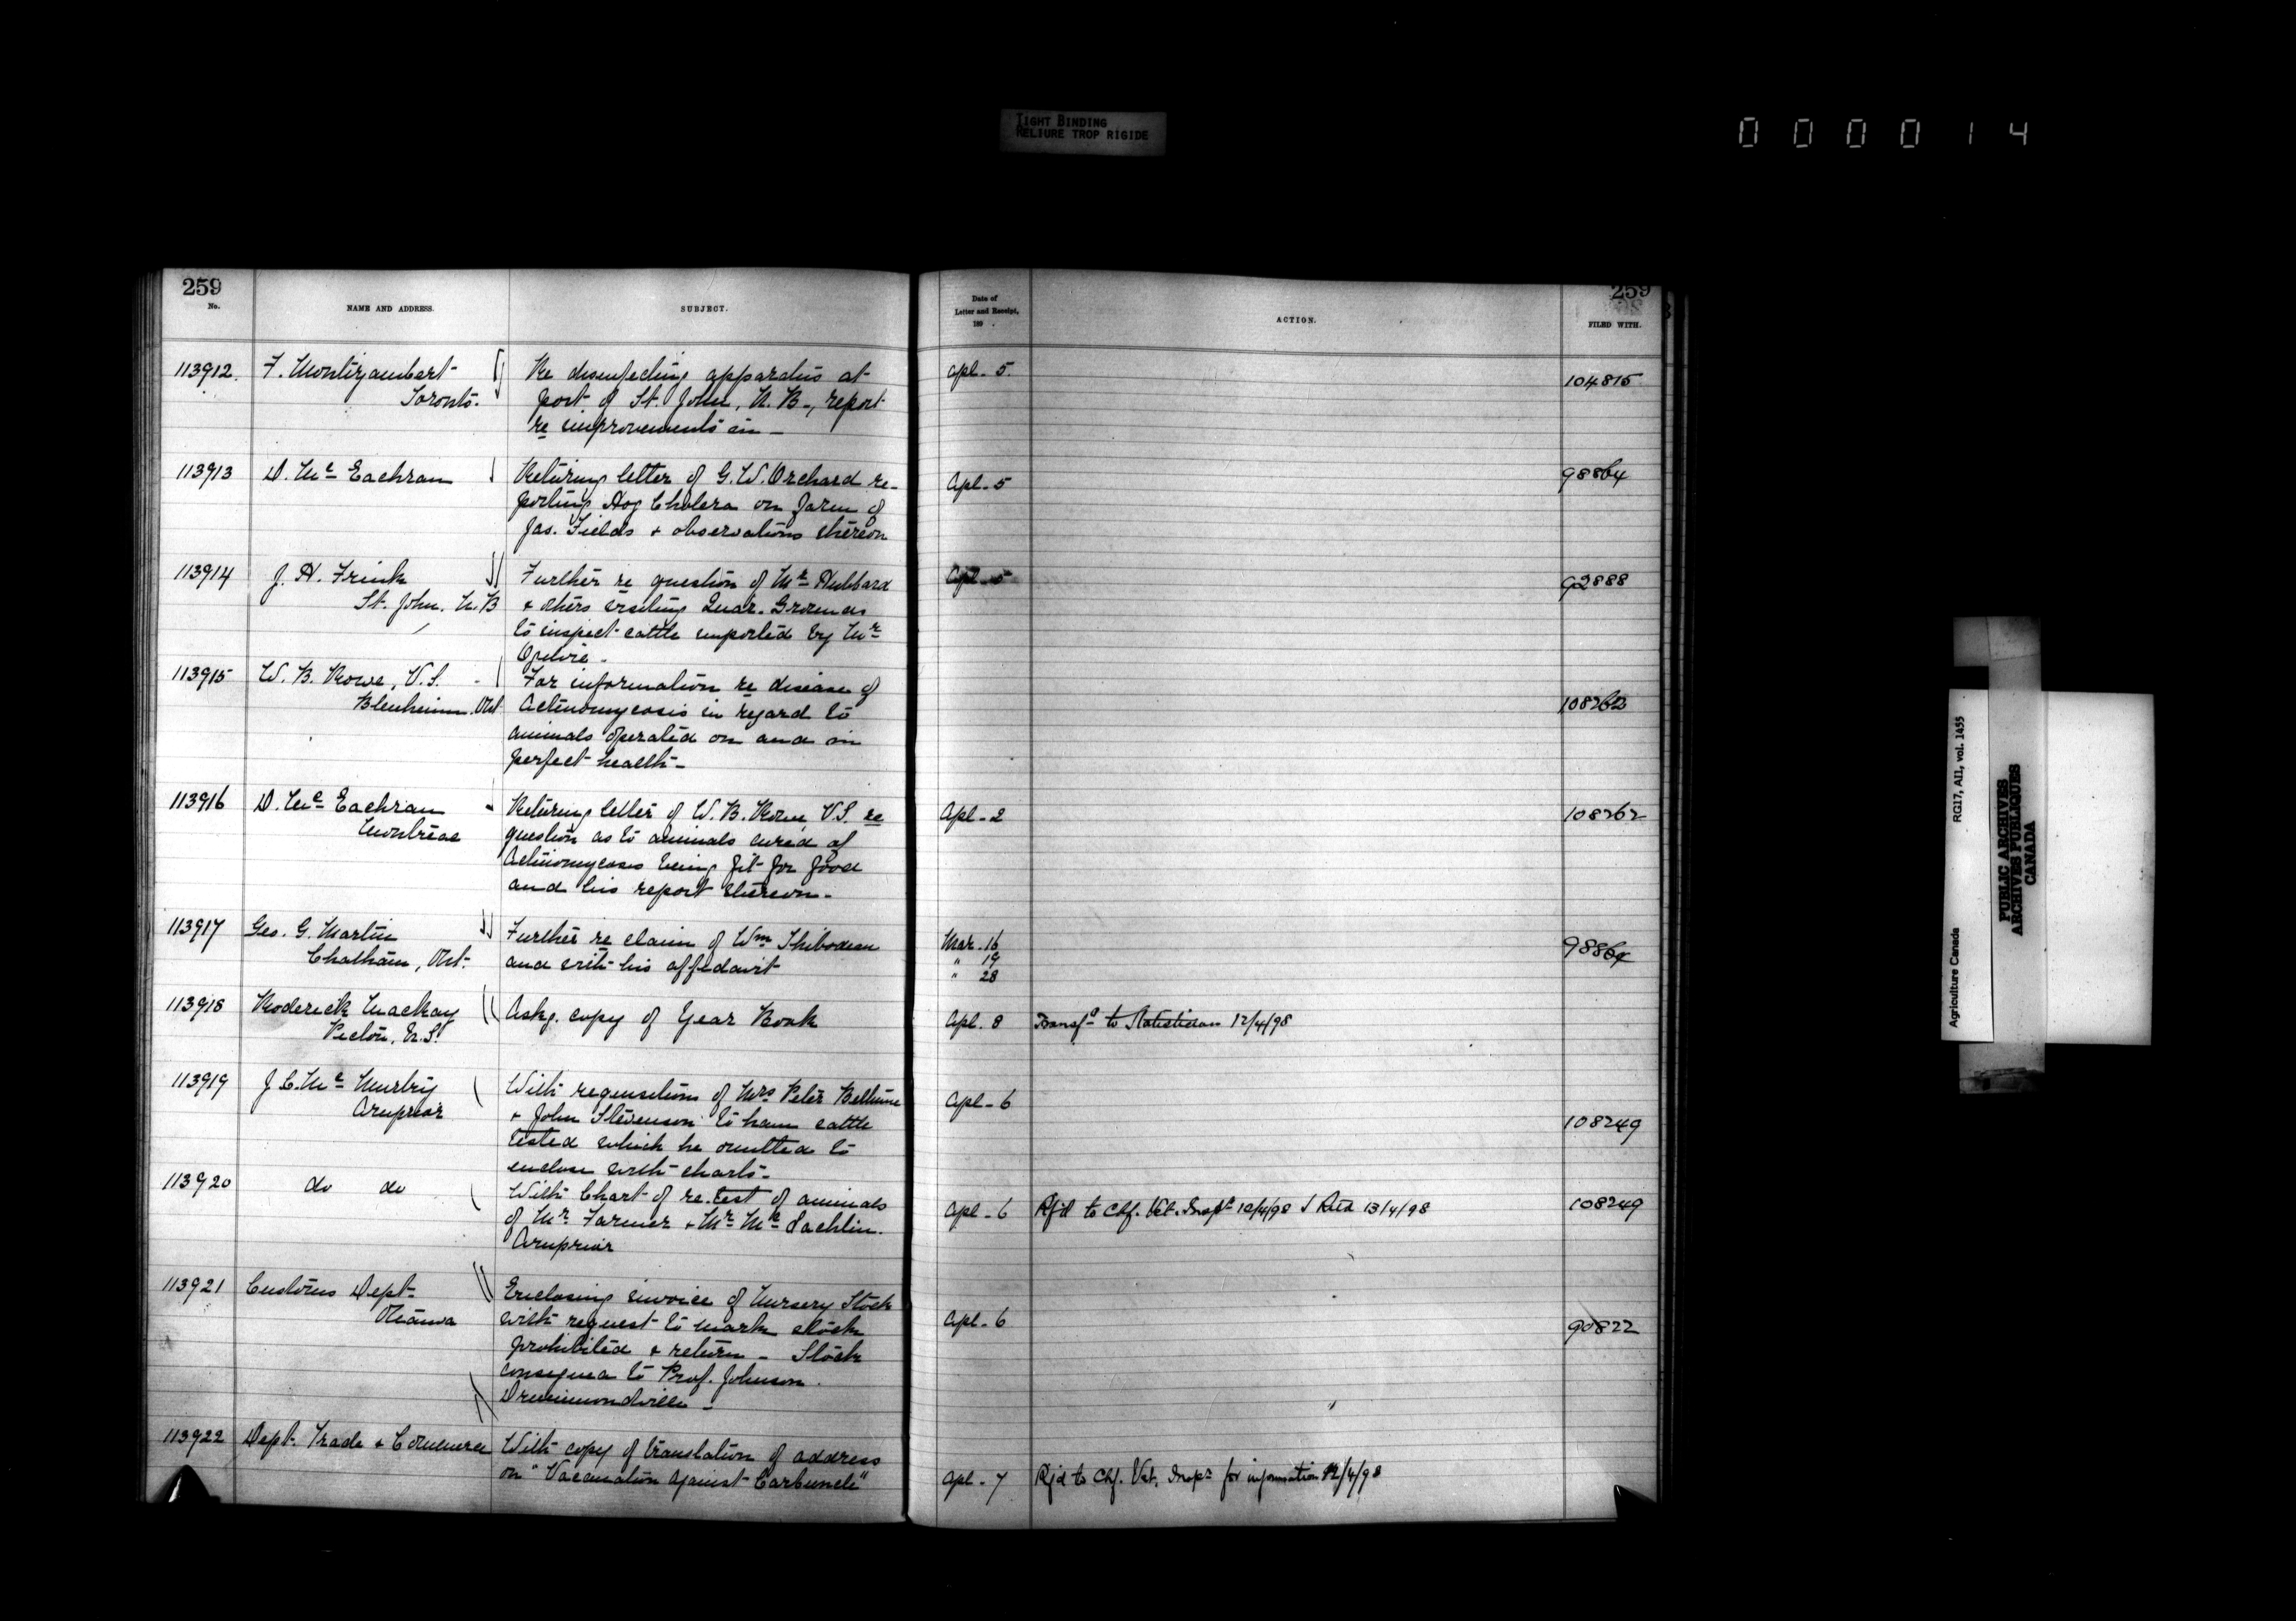 TIGHT BINDING
RELIURE TROP RIGIDE
000014
259
No.
NAME AND ADDRESS.
SUBJECT.
113912.
F. Montizambert
Toronto.
Re disinfecting apparatus at
port of St. John, N.B., report
re improvements in
113913
D. Mc Eachran
Returing letter of G. W. Orchard re-
porting Hog Cholera on farm of
Jas. Fields & observations thereon
113914
J. H. Frink
St. John. N.B
Further re question of Mr Hubbard
& others visiting Quar. Grounds
to inspect cattle imported by Mr
Ogilvie.
113915
W. B. Rowe, V.S.
Blenheim. Ont
For information re disease of
Actinomycosis in regard to
animals operated on and in
perfect health
113916
D. Mc Eachran
Montreal
Returing letter of W. B. Rowe V.S. re
question as to animals cured of
Actinomycosis being fit for food
and his report thereon
113917
Geo. G. Martin
Chatham, Ont.
Further re claim of Wm Thibodeau
and with his affidavit
113918
Roderick Mackay
Pictou, N.S.
Askg. copy of Year Book
113919
J. C. Mc
Arnprior
With requisitions of Mrs Peter Bethune
& John Stevenson to have cattle
tested which he omitted to
enclose with charts
113920
do do
With Chart of re-test of animals
of Mr Farmer & Mr Mc Lachlin.
Arnprior
113921
Customs Dept
Ottawa
Enclosing invoice of Nursery Stock
with request to mark stock
prohibited & return - Stock
consigned to Prof. Johnson.
Drummondville
113922
Dept. Trade & Commerce
With copy of translation of address
on "Vaccination against Carbuncle"
259
Date of
Letter and Receipt,
189 .
ACTION.
FILED WITH.
Apl. 5.
104815
Apl. 5
98864
Apl. 5
92888
108262
Apl. 2
108262
Mar. 16
" 19
" 28
98864
Apl. 8
Transfd to Statistician 12/4/98
Apl. 6
108249
Apl. 6
Rfd to Chf. Vet. Inspr 12/4/98 Retd 13/4/98
108249
Apl. 6
90822
Apl. 7
Rfd to Chf. Vet. Inspr for information 12/4/98
Agriculture Canada
RG17, AII, vol. 1455
PUBLIC ARCHIVES
ARCHIVES PUBLIQUES
CANADA